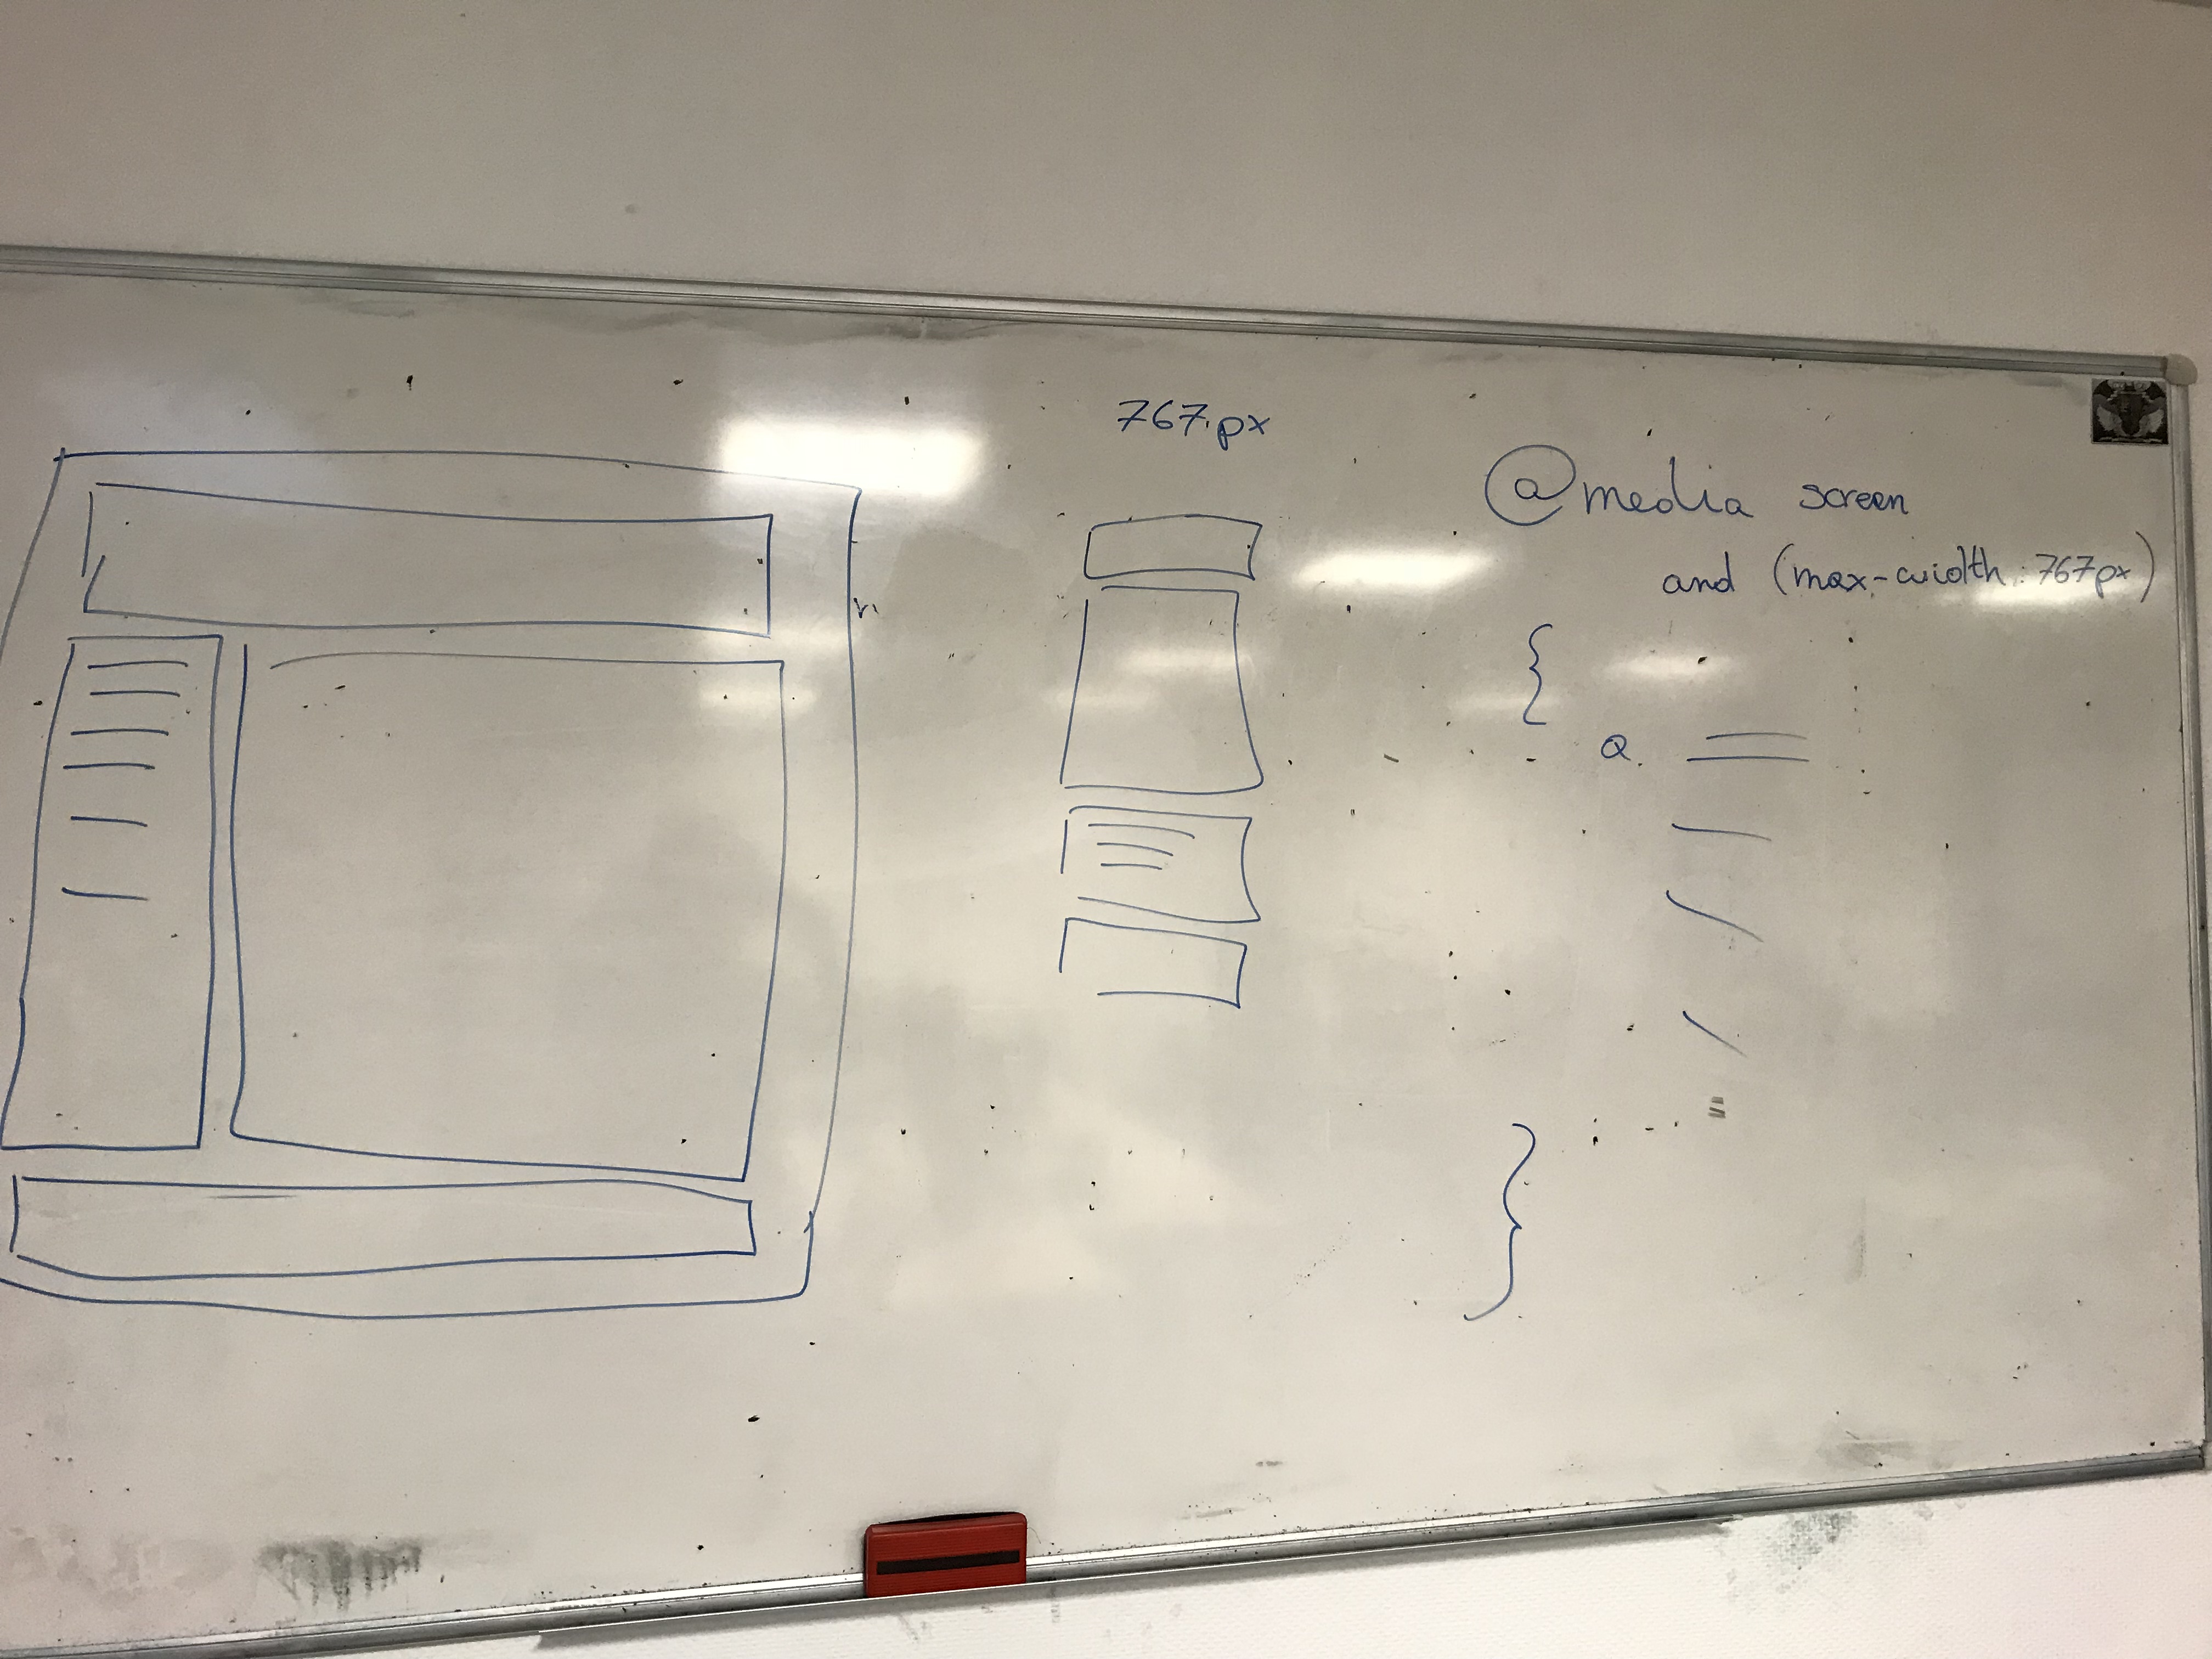 767px
@media screen
and (max-width: 767px)
{
a.
}